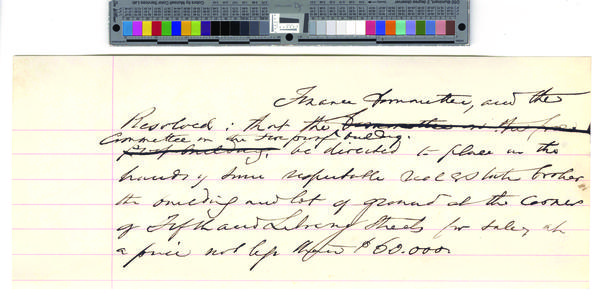 Finance Committee, and the
Resolved: that the Committee on the fire
Committee on the Fire proof building.
proof building, be directed to place in the
hands of some respectable real Estate broker
the building and lot of ground at the corner
of Fifth and Library Streets for sale, at
a price not less than $60.000.